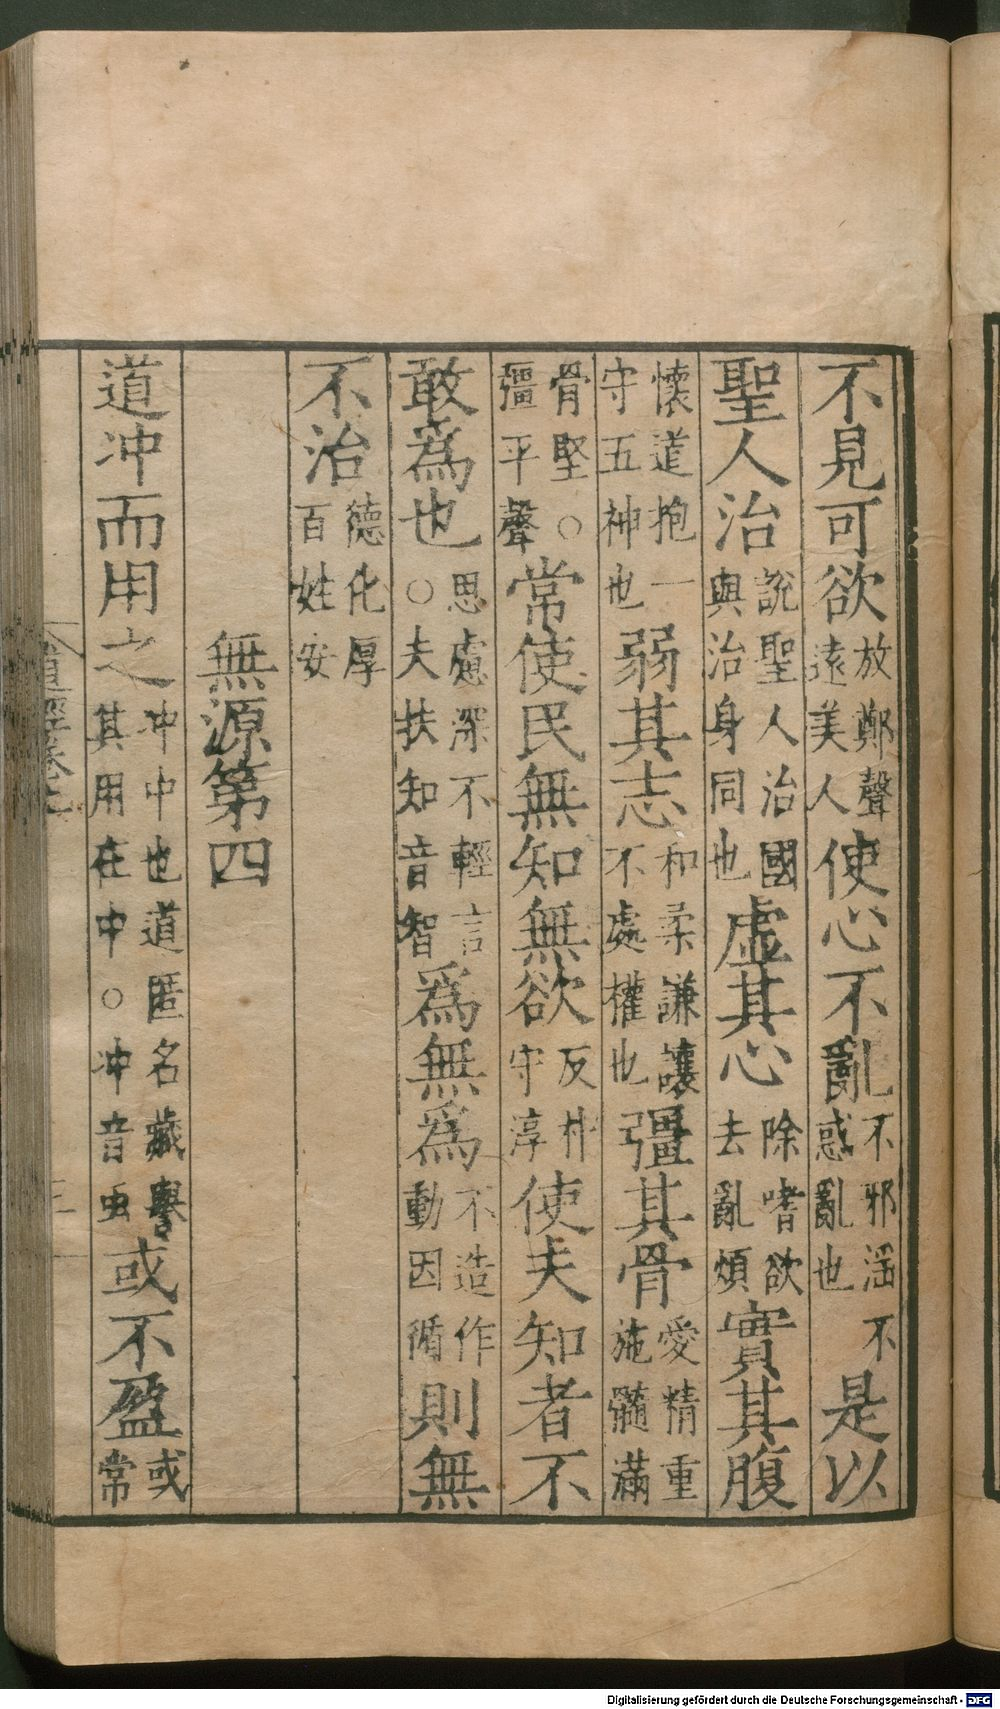 不見可欲放鄭聲遠美人使心不亂不邪滛不惑亂也是以
聖人治說聖人治國與治身同也虛其心除嗜欲去亂煩實其腹
懷道抱一守五神也弱其志和柔謙讓不處權也彊其骨愛精重施髓滿
骨堅○彊平聲常使民無知無欲反朴守淳使夫知者不
敢爲也思慮深不輕言○夫扶知音智爲無爲不造作動因循則無
不治德化厚百姓安
無源第四
道冲而用之冲中也道匿名藏譽其用在中○冲音虫或不盈或常
道經卷上
三
Digitalisierung gefördert durch die Deutsche Forschungsgemeinschaft - DFG